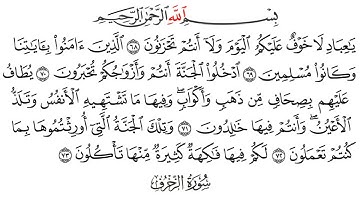 بِسْمِ اللَّهِ الرَّحْمَٰنِ الرَّحِيمِ
يَٰعِبَادِ لَا خَوْفٌ عَلَيْكُمُ الْيَوْمَ وَلَا أَنتُمْ تَحْزَنُونَ ٦٨ الَّذِينَ ءَامَنُوا بِـَٔايَٰتِنَا
وَكَانُوا مُسْلِمِينَ ٦٩ ادْخُلُوا الْجَنَّةَ أَنتُمْ وَأَزْوَٰجُكُمْ تُحْبَرُونَ ٧٠ يُطَافُ
عَلَيْهِم بِصِحَافٍ مِّن ذَهَبٍ وَأَكْوَابٍ ۖ وَفِيهَا مَا تَشْتَهِيهِ الْأَنفُسُ وَتَلَذُّ
الْأَعْيُنُ ۖ وَأَنتُمْ فِيهَا خَٰلِدُونَ ٧١ وَتِلْكَ الْجَنَّةُ الَّتِي أُورِثْتُمُوهَا بِمَا
كُنتُمْ تَعْمَلُونَ ٧٢ لَكُمْ فِيهَا فَٰكِهَةٌ كَثِيرَةٌ مِّنْهَا تَأْكُلُونَ ٧٣
سُورَةُ الزُّخْرُفِ